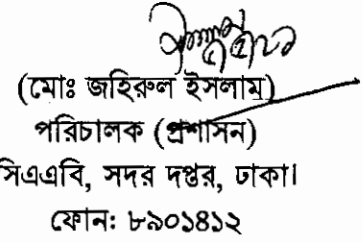 (মোঃ জহিরুল ইসলাম)
পরিচালক (প্রশাসন)
সিএএবি, সদর দপ্তর, ঢাকা।
ফোনঃ ৮৯০১৪১২